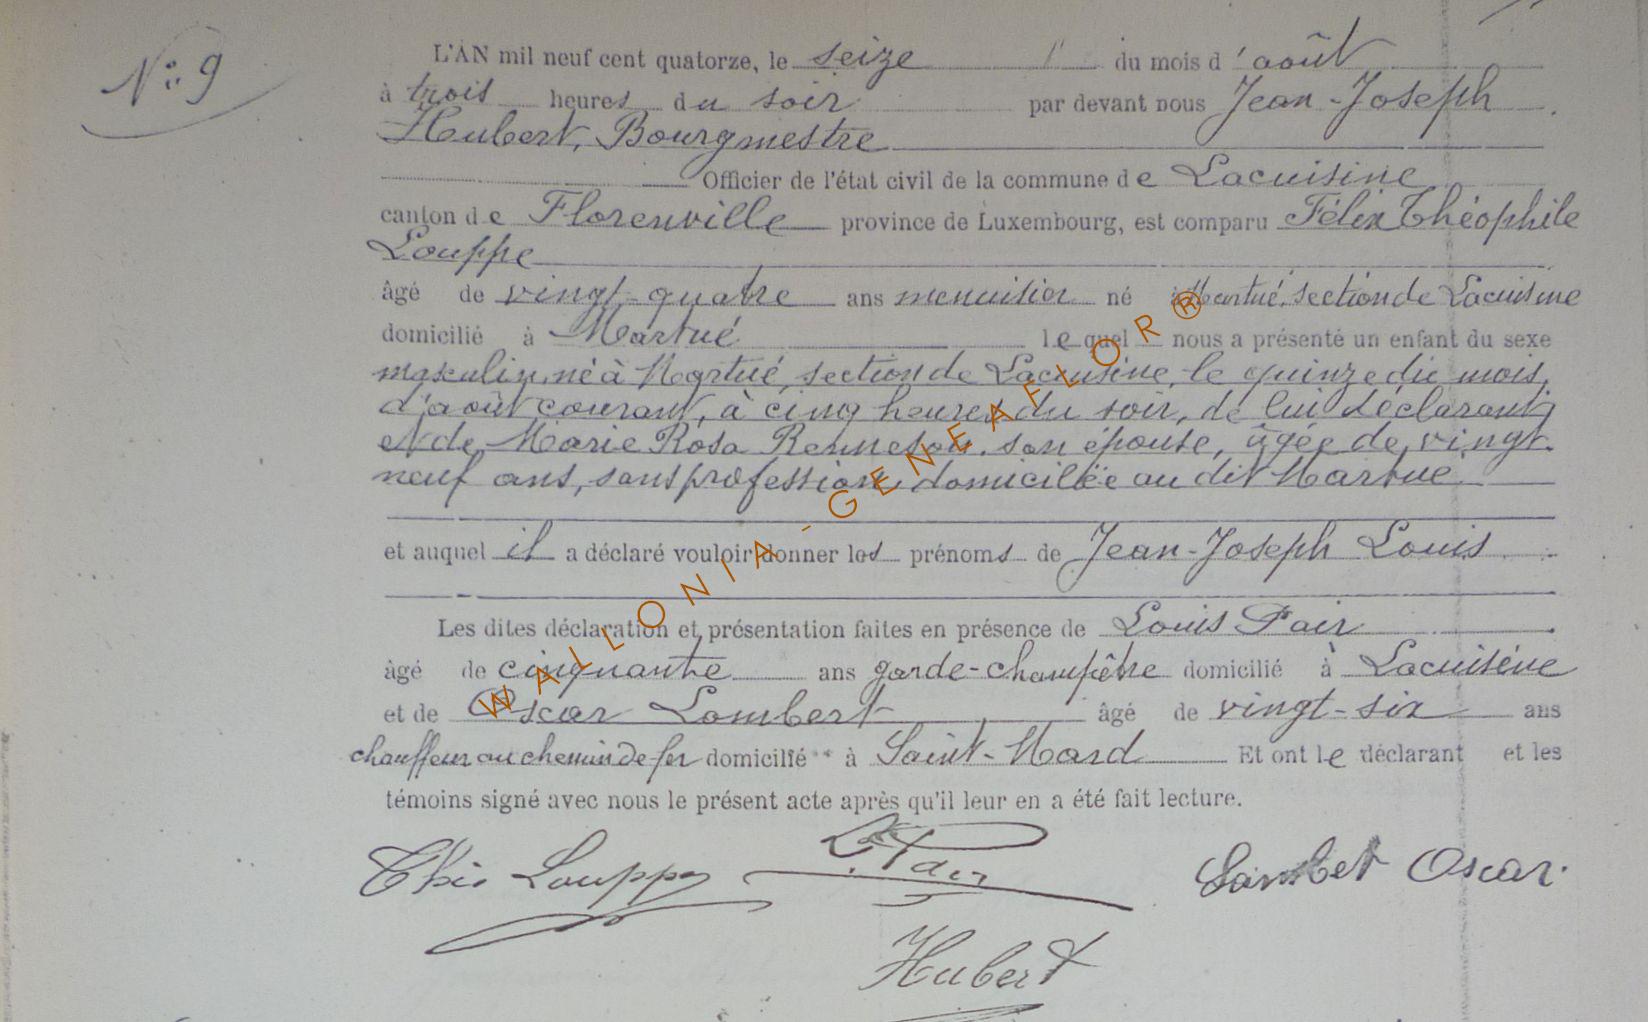 N° 9
L'AN mil neuf cent quatorze, le seize du mois d'août
à trois heures du soir par devant nous Jean-Joseph
Hubert, Bourgmestre
Officier de l'état civil de la commune de Lacuisine
canton de Florenville province de Luxembourg, est comparu Félix Théophile
Louppe
âgé de vingt-quatre ans menuisier né à Martué, section de Lacuisine
domicilié à Martué lequel nous a présenté un enfant du sexe
masculin, né à Martué, section de Lacuisine, le quinze du mois
d'août courant, à cinq heures du soir, de lui déclarant
et de Marie Rosa Renneson, son épouse, âgée de vingt-
neuf ans, sans profession, domiciliée au dit Martué
et auquel il a déclaré vouloir donner les prénoms de Jean-Joseph Louis
Les dites déclaration et présentation faites en présence de Louis Pair
âgé de cinquante ans garde-champêtre domicilié à Lacuisine
et de Oscar Lambert âgé de vingt-six ans
chauffeur au chemin de fer domicilié à Saint-Mard Et ont le déclarant et les
témoins signé avec nous le présent acte après qu'il leur en a été fait lecture.
Théo Louppe L. Pair Lambert Oscar.
Hubert
WALLONIA-GENEAFLOR®